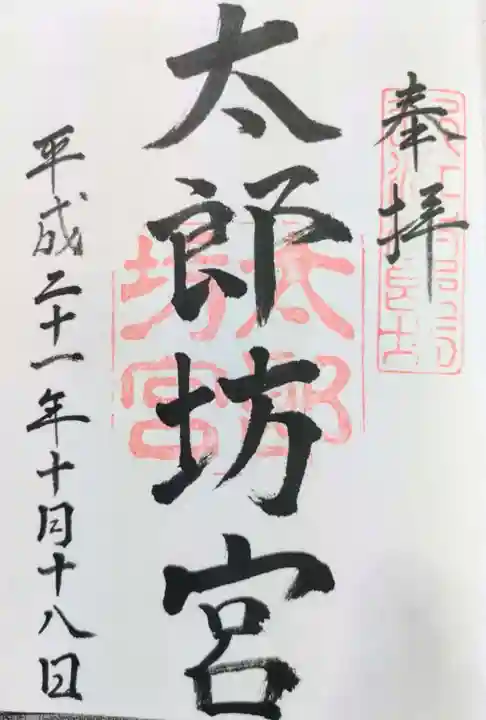 奉拝
太郎坊宮
太郎坊宮
平成二十一年十月十八日